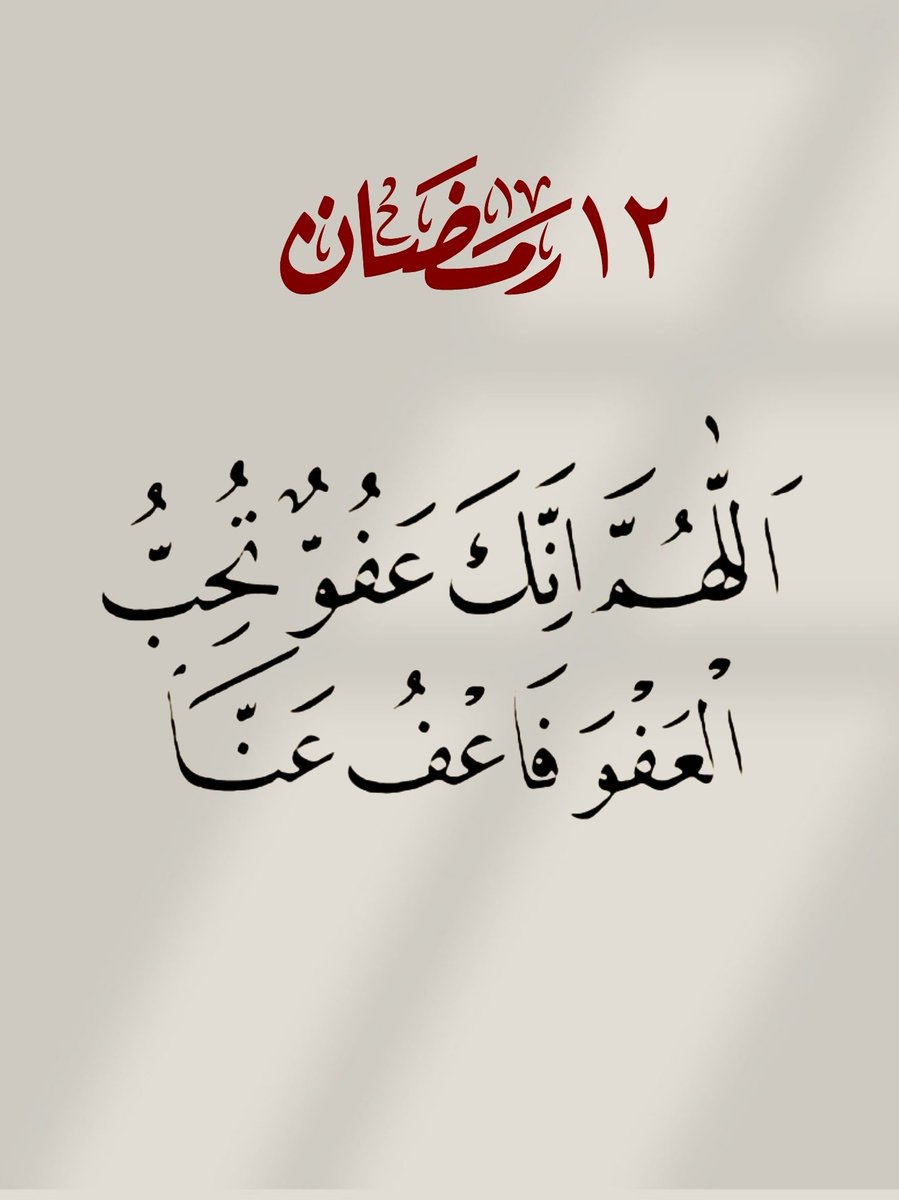 ١٢ رمضان
اَللّٰهُمَّ اِنَّكَ عَفُوٌّ تُحِبُّ
الْعَفْوَ فَاعْفُ عَنَّا